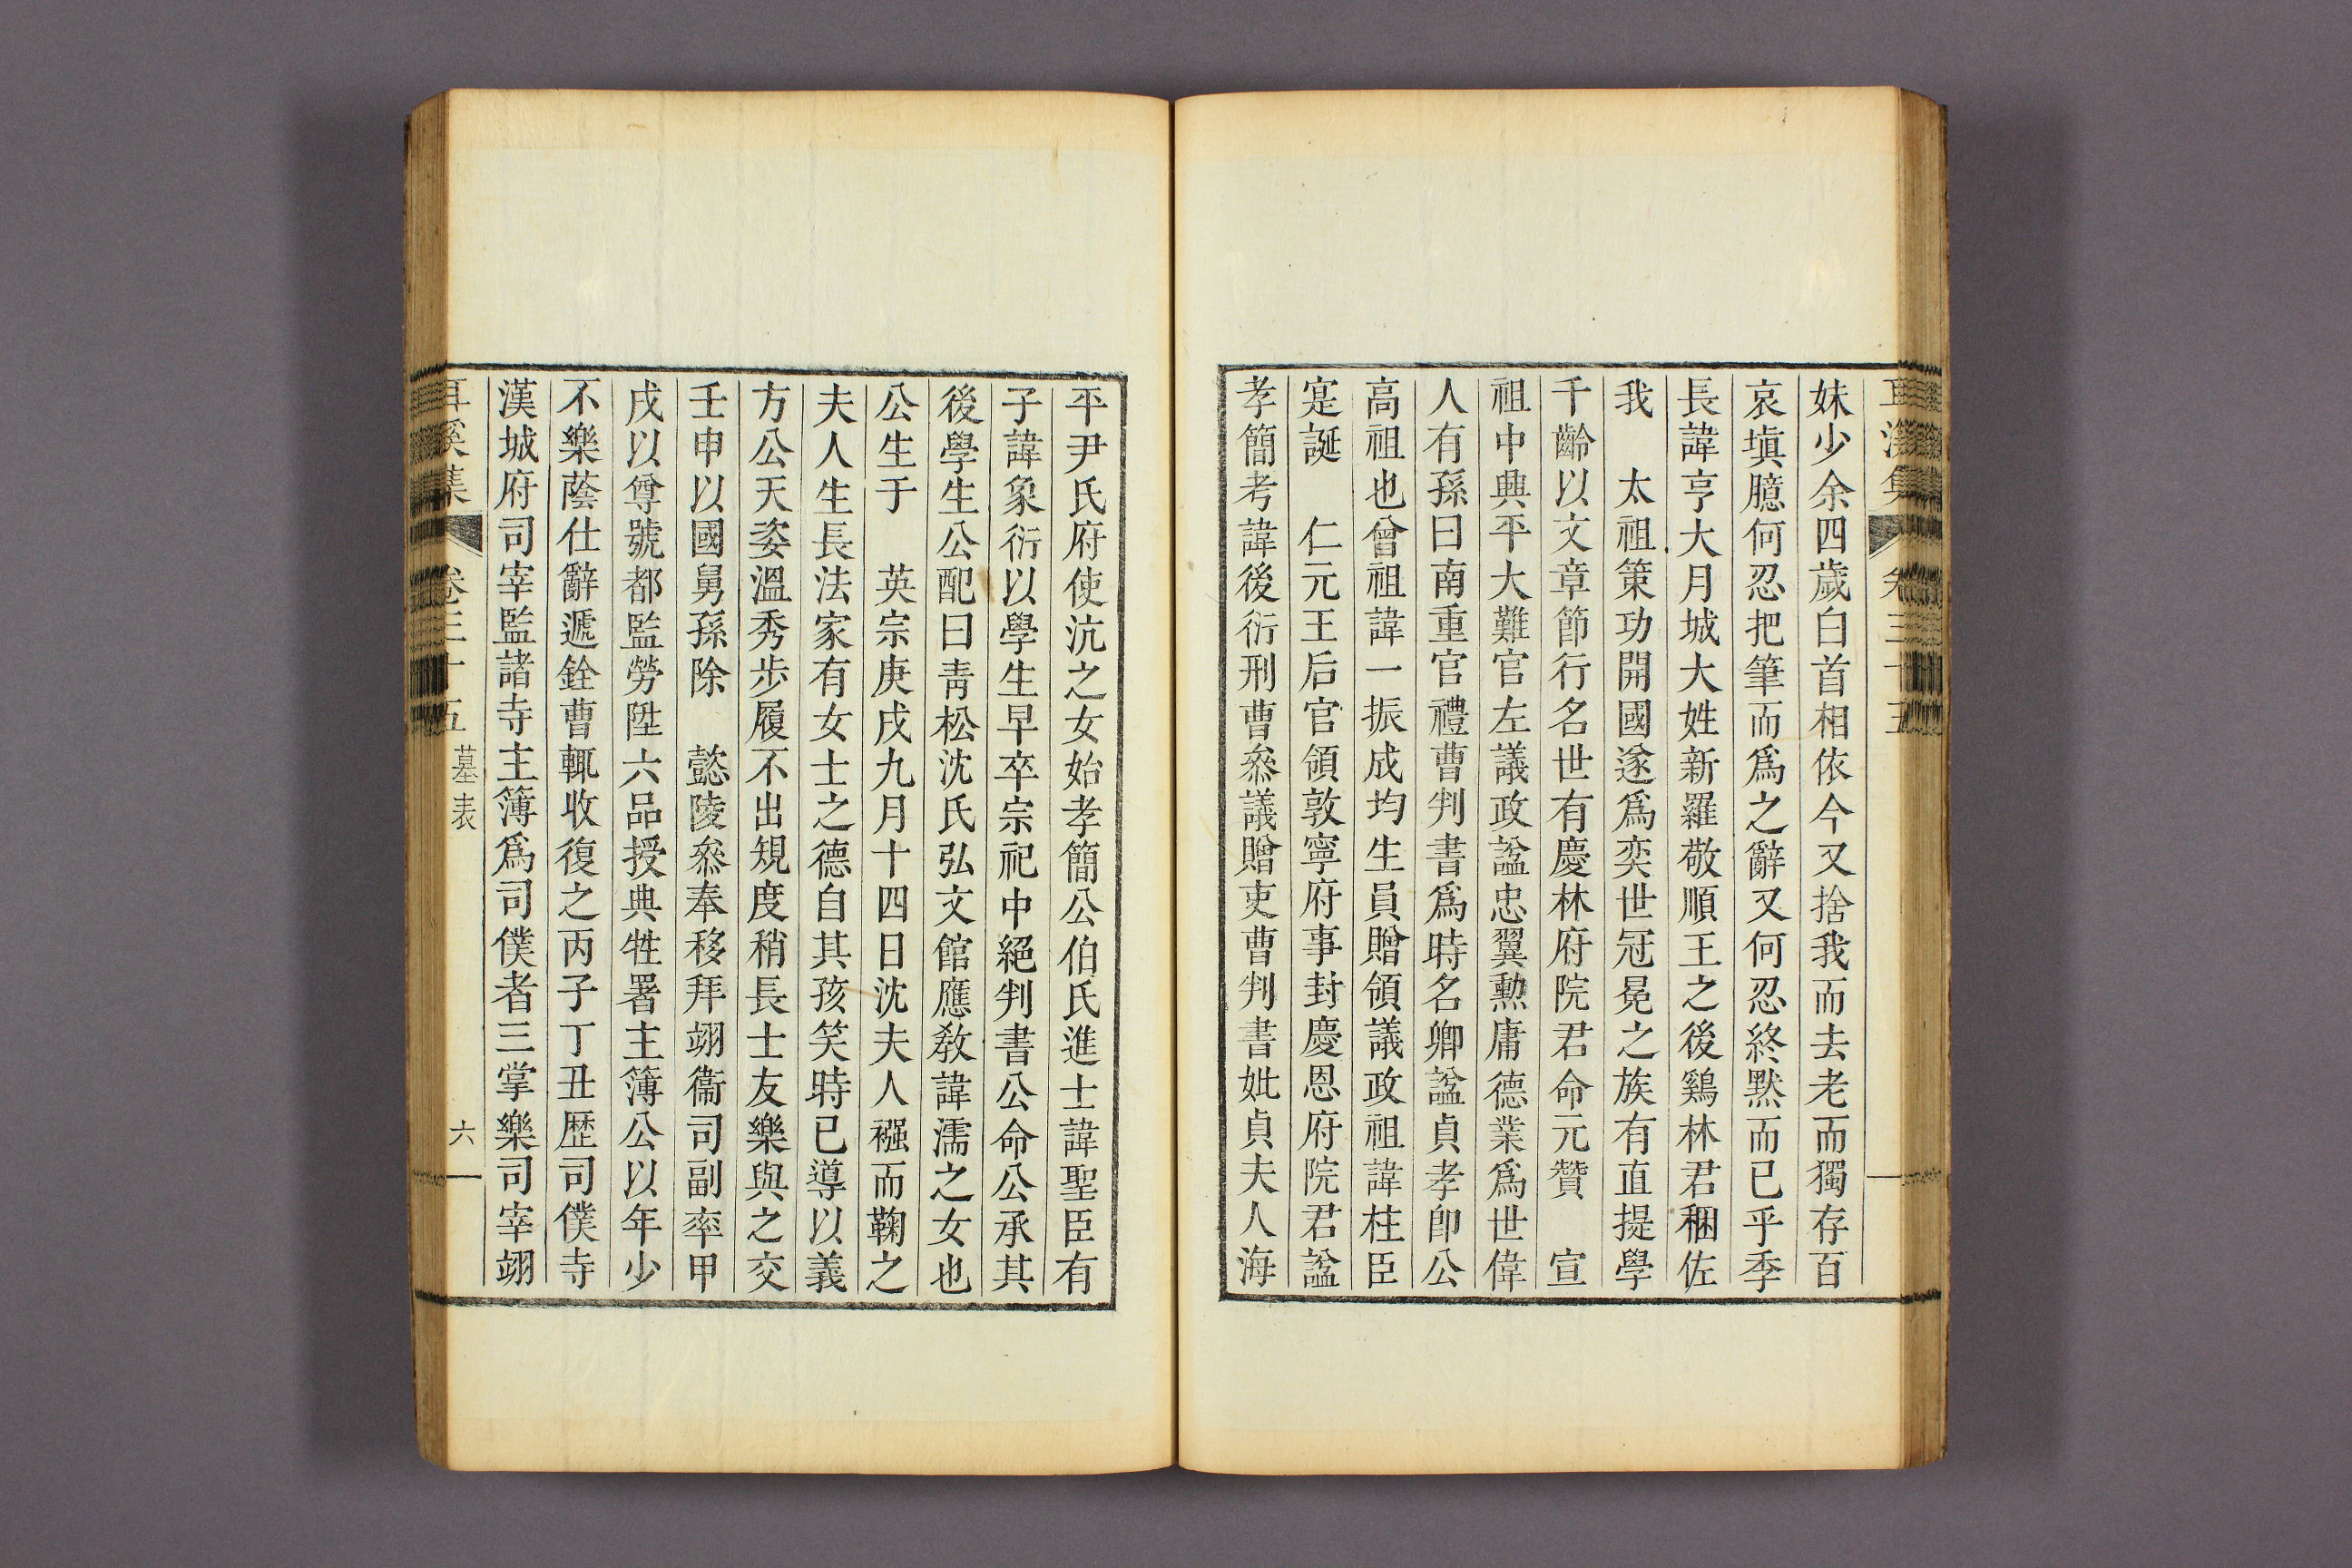 耳溪集 卷三十五
妹少余四歲白首相依今又捨我而去老而獨存百
哀塡臆何忍把筆而爲之辭又何忍終黙而已乎季
長諱亨大月城大姓新羅敬順王之後鷄林君稛佐
我　太祖策功開國遂爲奕世冠冕之族有直提學
千齡以文章節行名世有慶林府院君命元贊　宣
祖中興平大難官左議政諡忠翼勳庸德業爲世偉
人有孫曰南重官禮曹判書爲時名卿諡貞孝卽公
高祖也曾祖諱一振成均生員贈領議政祖諱柱臣
寔誕　仁元王后官領敦寧府事封慶恩府院君諡
孝簡考諱後衍刑曹叅議贈吏曹判書妣貞夫人海
平尹氏府使沆之女始孝簡公伯氏進士諱聖臣有
子諱象衍以學生早卒宗祀中絕判書公命公承其
後學生公配曰靑松沈氏弘文館應敎諱濡之女也
公生于　英宗庚戌九月十四日沈夫人襁而鞠之
夫人生長法家有女士之德自其孩笑時已導以義
方公天姿溫秀步履不出規度稍長士友樂與之交
壬申以國舅孫除　懿陵叅奉移拜翊衞司副率甲
戌以尊號都監勞陞六品授典牲署主簿公以年少
不樂蔭仕辭遞銓曹輒收復之丙子丁丑歷司僕寺
漢城府司宰監諸寺主簿爲司僕者三掌樂司宰翊
耳溪集 卷三十五 墓表 六